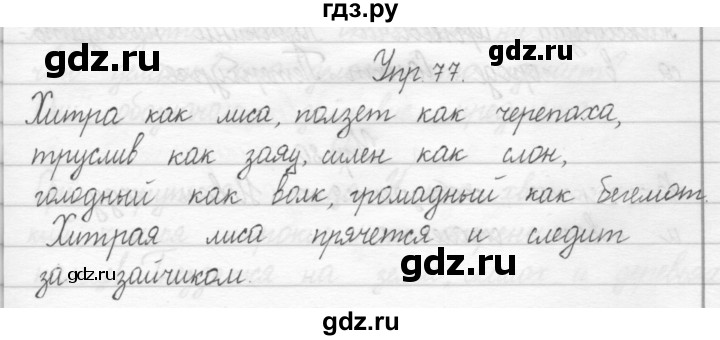 гдз.ру
gdz.ru gdz.ru
Упр. 77.
Хитра как лиса, ползет как черепаха,
труслив как заяц, силен как слон,
gdz.ru gdz.ru
голодный как волк, громадный как бегемот.
Хитрая лиса прячется и следит
за зайчиком.
gdz.ru gdz.ru
gdz.ru